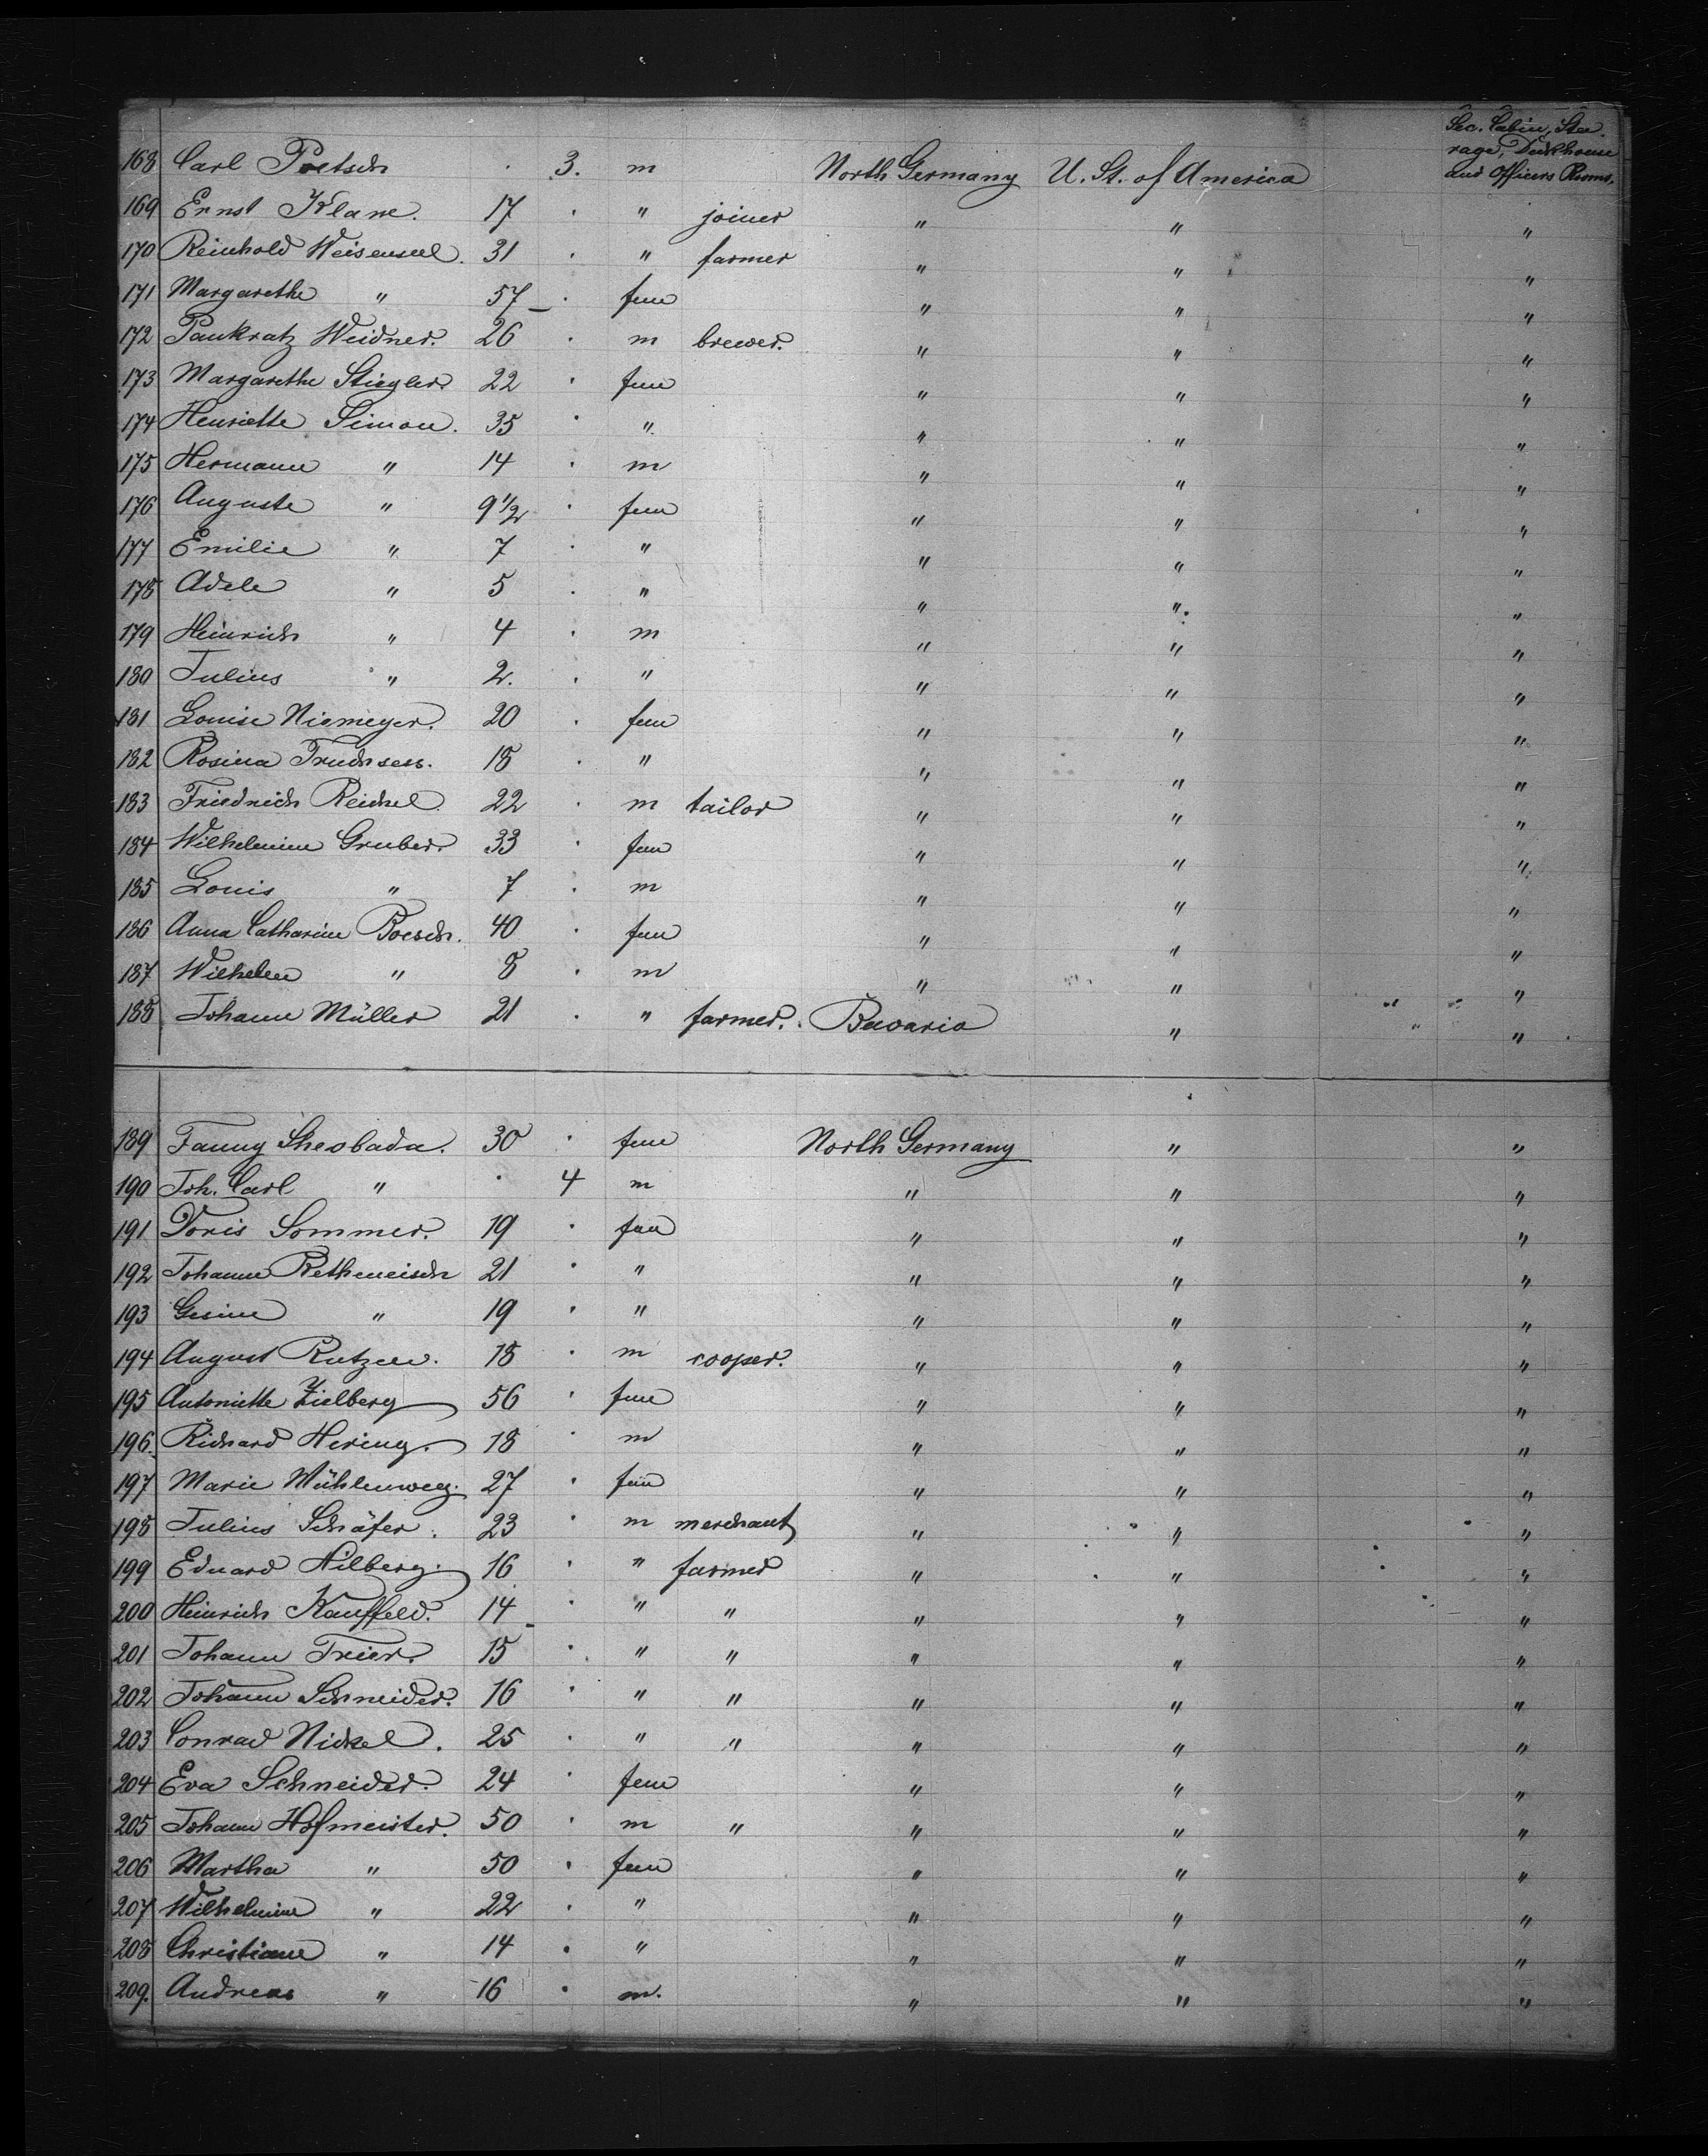 Sec. Cabin, Stee-
rage, Deckhouse
and Officers Rooms.
168 Carl Poetsch . 3. m North Germany U. St. of America
169 Ernst Klane. 17 . " joiner " " "
170 Reinhold Weisenseel. 31 . " farmer " " "
171 Margarethe " 57 . fem " " "
172 Pankratz Weidner. 26 . m brewer. " " "
173 Margarethe Stiegler. 22 . fem " " "
174 Henriette Simon. 35 . " " " "
175 Hermann " 14 . m " " "
176 Auguste " 9 1/2 . fem " " "
177 Emilie " 7 . " " " "
178 Adele " 5 . " " " "
179 Heinrich " 4 . m " " "
180 Julius " 2. . " " " "
181 Louise Niemeyer. 20 . fem " " "
182 Rosina Truchsess. 18 . " " " "
183 Friedrich Reichel 22 . m tailor " " "
184 Wilhelmine Gruber. 33 . fem " " "
185 Louis " 7 . m " " "
186 Anna Catharine Boesch. 40 . fem " " "
187 Wilhelm " 8 . m " " "
188 Johann Müller 21 . " farmer. Bavaria " "
189 Fanny 30 . fem North Germany " "
190 Joh. Carl " . 4 m " " "
191 Doris Sommer. 19 . fem " " "
192 Johanne Rethmeisch 21 . " " " "
193 Gesine " 19 . " " " "
194 August Rutzen. 18 . m cooper. " " "
195 Antoinette Zielberg 56 . fem " " "
196. Richard Hering. 18 . m " " "
197 Marie Mühlenweg. 27 . fem " " "
198 Julius Schäfer. 23 . m merchant " " "
199 Eduard Hilberg. 16 . " farmer " " "
200 Heinrich Kauffeld. 14 . " " " " "
201 Johann Freier. 15 . " " " " "
202 Johann Schneider. 16 . " " " " "
203 Conrad Nickel. 25 . " " " " "
204 Eva Schneider. 24 . fem " " "
205 Johann Hofmeister. 50 . m " " " "
206 Martha " 50 . fem " " "
207 Wilhelmine " 22 . " " " "
208 Christiane " 14 . " " " "
209. Andreas " 16 . m. " " "